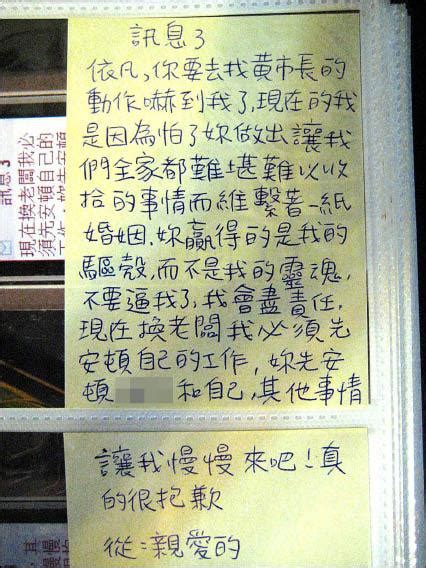 訊息3
依凡,你要去找黃市長的
動作嚇到我了,現在的我
是因為怕了妳做出讓我
們全家都難堪難以收
拾的事情而維繫著一紙
婚姻.妳贏得的是我的
驅殼,而不是我的靈魂,
不要逼我了,我會盡責任,
現在換老闆我必須先
安頓自己的工作,妳先安
頓 和自己,其他事情
讓我慢慢來吧!真
的很抱歉
從:親愛的
訊息 3
現在換老闆我必
須先安頓自己的